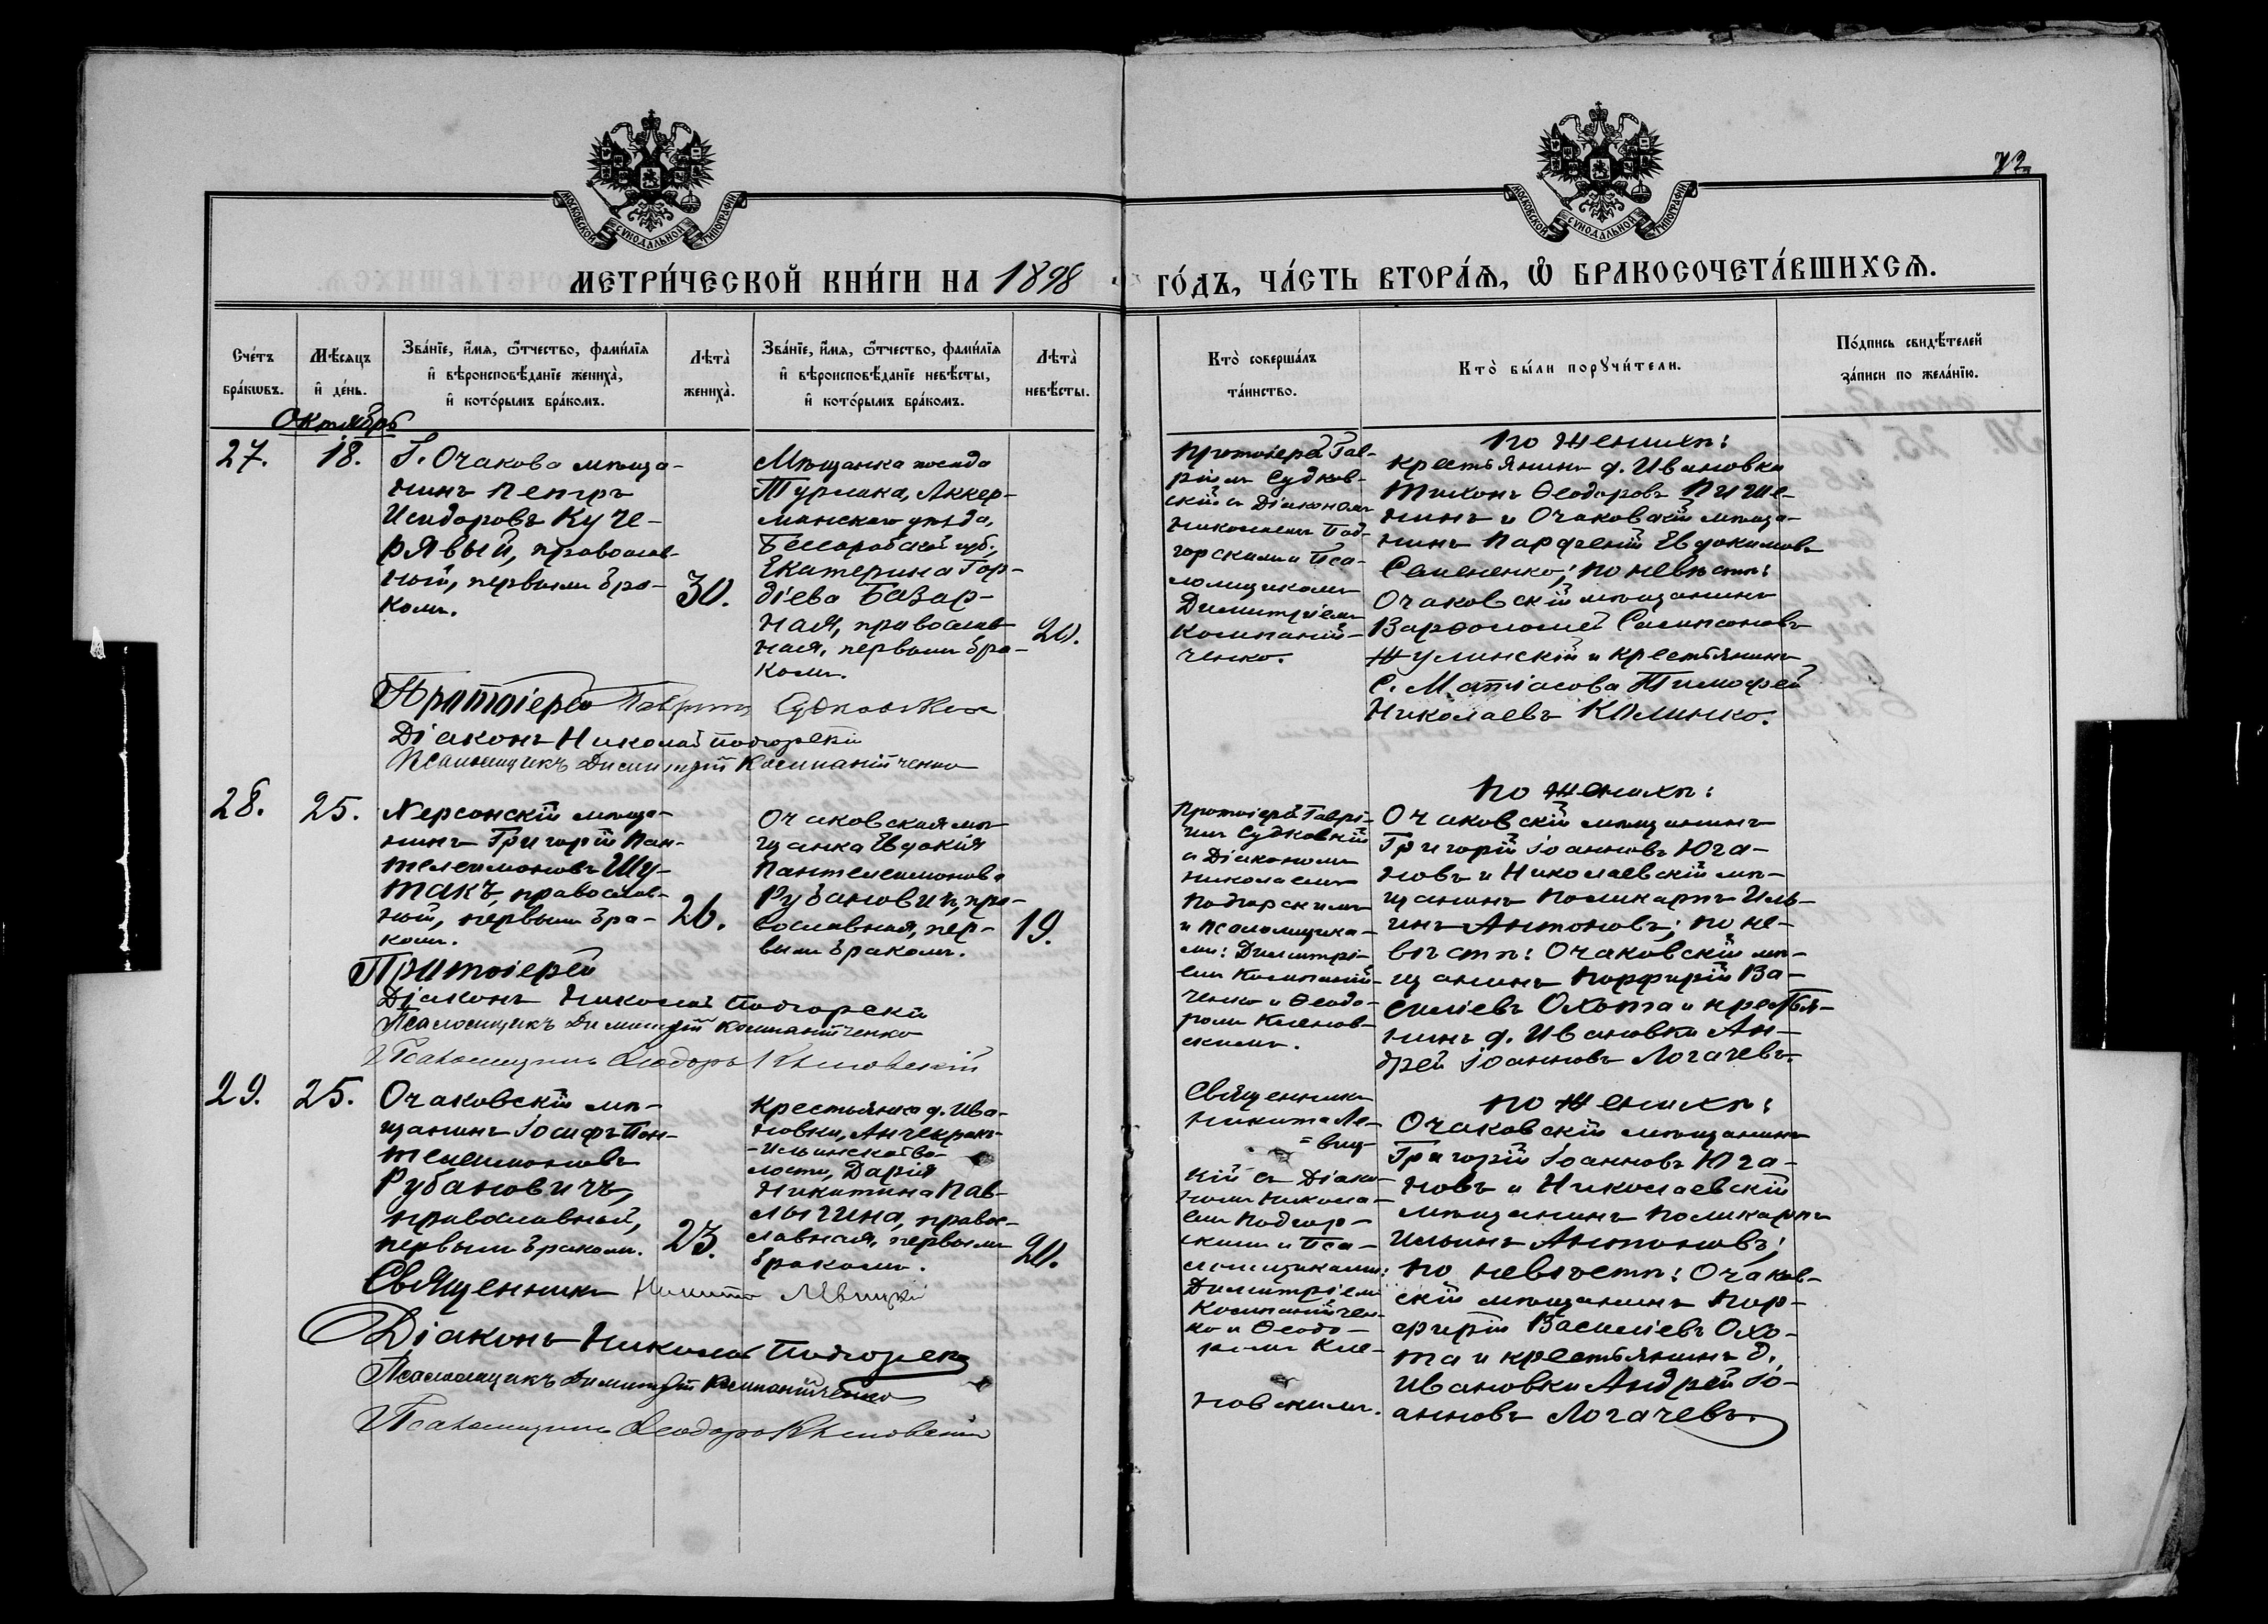 72
МОСКОВСКОЙ СУНОДАЛЬНОЙ ТИПОГРАФІИ
МОСКОВСКОЙ СУНОДАЛЬНОЙ ТИПОГРАФІИ
МЕТРИ́ЧЕСКОЙ КНИ́ГИ НА 1898 ГО́ДЪ, ЧА́СТЬ ВТОРА́Ѧ, Ѽ БРАКОСОЧЕТА́ВШИХСѦ.
Сче́тъ
бра́кѡвъ.
Мѣ́сѧцъ
и҆ де́нь.
Зва́нїе, и҆́мѧ, ѻ҆́тчество, фами́лїѧ
и҆ вѣроисповѣ́данїе жениха̀,
и҆ кото́рымъ бра́комъ.
Лѣта̀
жениха̀.
Зва́нїе, и҆́мѧ, ѻ҆́тчество, фами́лїѧ
и҆ вѣроисповѣ́данїе невѣ́сты,
и҆ кото́рымъ бра́комъ.
Лѣта̀
невѣ́сты.
Кто̀ соверша́лъ
та́инство.
Кто̀ бы́ли порꙋчи́тели.
По́дпись свидѣ́телей
за́писи по жела́нїю.
Октябрь
27.
18.
Г. Очакова мѣща-
нинъ Петръ
Исидоровъ Куче-
рявый, православ-
ный, первымъ бра-
комъ.
30.
Мѣщанка посада
Турлака, Аккер-
манскаго уѣзда,
Бессарабской губ.,
Екатерина Гор-
діева Базар-
ная, православ-
ная, первымъ бра-
комъ.
20.
Протоіерей Гав-
ріилъ Судков-
скій съ Діакономъ
Николаемъ Под-
горскимъ и Пса-
ломщикомъ
Димитріемъ
Компаній-
ченко.
По женихѣ:
крестьянинъ д. Ивановки
Тихонъ Ѳеодоровъ Пише-
нинъ и Очаковскій мѣща-
нинъ Парфеній Евдокимовъ
Семененко; по невѣстѣ:
Очаковскій мѣщанинъ
Варѳоломей Сампсоновъ
Жулинскій и крестьянинъ
С. Матіасова Тимофей
Николаевъ Климко.
Протоіерей Гавріилъ Судковскій
Діаконъ Николай Подгорскій
Псаломщикъ Димитрій Компанійченко
28.
25.
Херсонскій мѣща-
нинъ Григорій Пан-
телеимоновъ Шу-
такъ, православ-
ный, первымъ бра-
комъ.
26.
Очаковская мѣ-
щанка Евдокія
Пантелеимонова
Рубановичъ, пра-
вославная, пер-
вымъ бракомъ.
19.
Протоіерей Гаврі-
илъ Судковскій
съ Діакономъ
Николаемъ
Подгорскимъ
и Псаломщика-
ми: Димитрі-
емъ Компаній-
ченко и Ѳеодо-
ромъ Кленов-
скимъ.
По женихѣ:
Очаковскій мѣщанинъ
Григорій Іоанновъ Юга-
новъ и Николаевскій мѣ-
щанинъ Поликарпъ Иль-
инъ Антоновъ; по не-
вѣстѣ: Очаковскій мѣ-
щанинъ Порфирій Ва-
силіевъ Охота и крестья-
нинъ д. Ивановки Ан-
дрей Іоанновъ Логачевъ.
Протоіерей
Діаконъ Николай Подгорскій
Псаломщикъ Димитрій Компанійченко
Псаломщикъ Ѳеодоръ Кленовскій
29.
25.
Очаковскій мѣ-
щанинъ Іосифъ Пан-
телеимоновъ
Рубановичъ,
православный,
первымъ бракомъ.
23.
Крестьянка д. Ива-
новки, Анчекрак-
-Ильинской во-
лости, Дарія
Никитина Пав-
лычина, право-
славная, первымъ
бракомъ.
20.
Священникъ
Никита Ле-
=виц-
кій съ Діако-
номъ Никола-
емъ Подгор-
скимъ и Пса-
ломщиками:
Димитріемъ
Компанійчен-
ко и Ѳеодо-
ромъ Кле-
новскимъ.
По женихѣ:
Очаковскій мѣщанинъ
Григорій Іоанновъ Юга-
новъ и Николаевскій
мѣщанинъ Поликарпъ
Ильинъ Антоновъ;
по невѣстѣ: Очаков-
скій мѣщанинъ Пор-
фирій Василіевъ Охо-
та и крестьянинъ д.
Ивановки Андрей Іо-
анновъ Логачевъ.
Священникъ Никита Левицкій
Діаконъ Николай Подгорскій
Псаломщикъ Димитрій Компанійченко
Псаломщикъ Ѳеодоръ Кленовскій